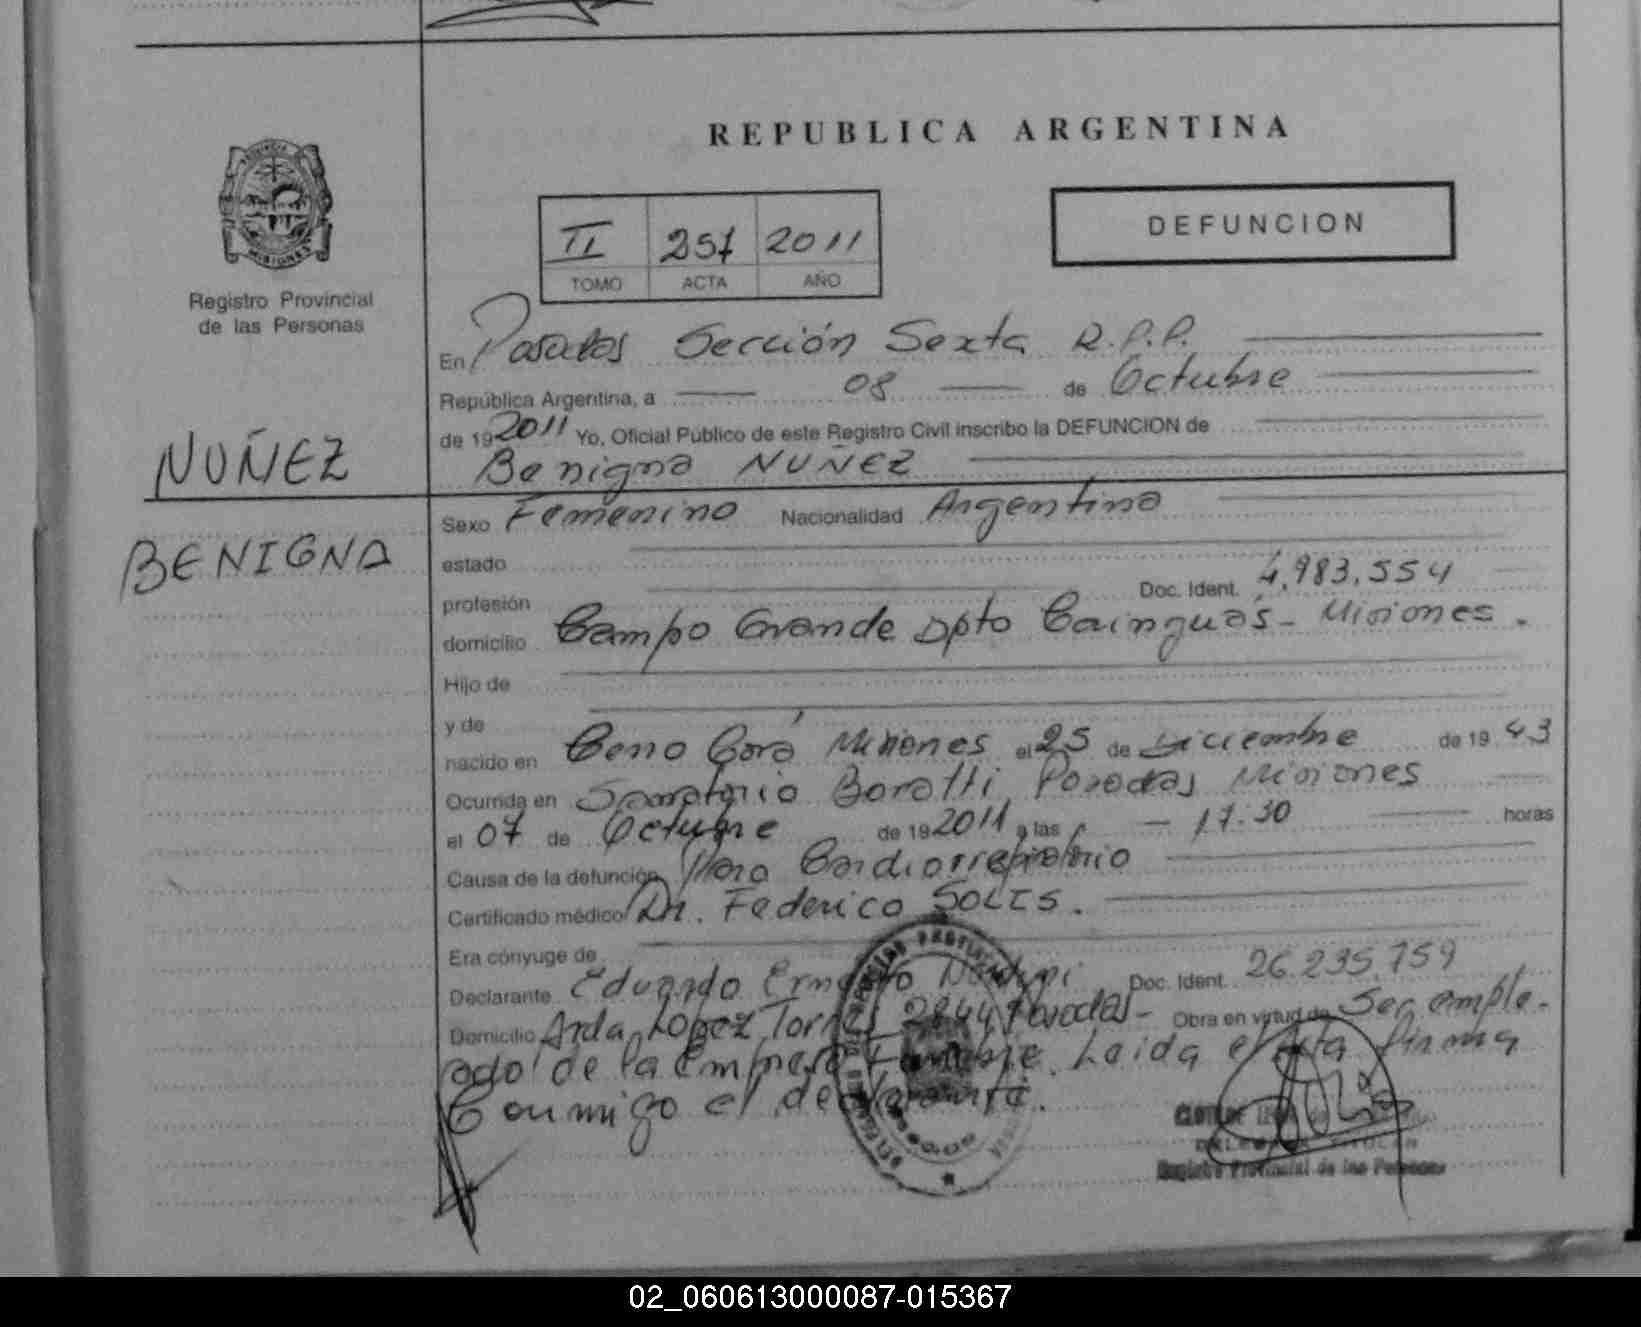 REPUBLICA ARGENTINA
DEFUNCION
II 257 2011
TOMO ACTA AÑO
MISIONES
Registro Provincial
de las Personas
NUÑEZ
BENIGNA
En Posadas Sección Sexta R.P.P.
República Argentina, a 08 de Octubre
de 19 2011 Yo, Oficial Público de este Registro Civil inscribo la DEFUNCION de
Benigna NUÑEZ
Sexo Femenino Nacionalidad Argentina
estado
profesión Doc. Ident. 4.983.554
domicilio Campo Grande Dpto Cainguas - Misiones.
Hijo de
y de
nacido en Cerro Corá Misiones el 25 de Diciembre de 19 43
Ocurrida en Sanatorio Boratti Posadas Misiones
el 07 de Octubre de 19 2011 a las 17:30 horas
Causa de la defunción Paro Cardiorrespiratorio
Certificado médico Dr. Federico SOLIS.
Era cónyuge de
Declarante Eduardo Ernesto Doc. Ident. 26.235.759
Domicilio Avda. López Torres 2844 Posadas - Obra en virtud de Ser emple-
ado de la Empresa Fúnebre. Leida el acta firma
Conmigo el declarante.
Registro Provincial de las Personas
02_060613000087-015367